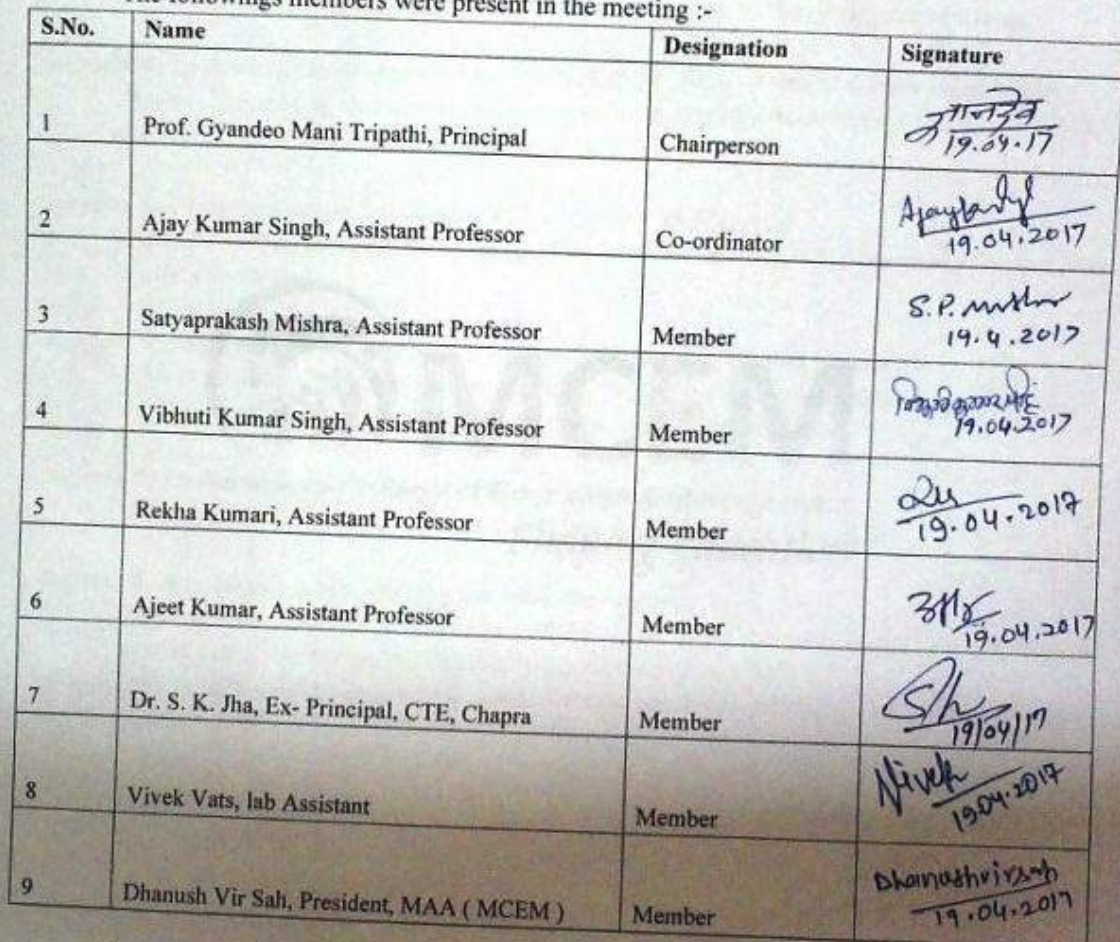 The followings members were present in the meeting :-
S.No. Name Designation Signature
1 Prof. Gyandeo Mani Tripathi, Principal Chairperson ज्ञानदेव
19.04.17
2 Ajay Kumar Singh, Assistant Professor Co-ordinator
19.04.2017
3 Satyaprakash Mishra, Assistant Professor Member S.P. Mishra
19.4.2017
4 Vibhuti Kumar Singh, Assistant Professor Member
19.04.2017
5 Rekha Kumari, Assistant Professor Member
19.04.2017
6 Ajeet Kumar, Assistant Professor Member
19.04.2017
7 Dr. S. K. Jha, Ex- Principal, CTE, Chapra Member
19/04/17
8 Vivek Vats, lab Assistant Member Vivek
19.04.2017
9 Dhanush Vir Sah, President, MAA ( MCEM ) Member Dhanushvirsah
19.04.2017